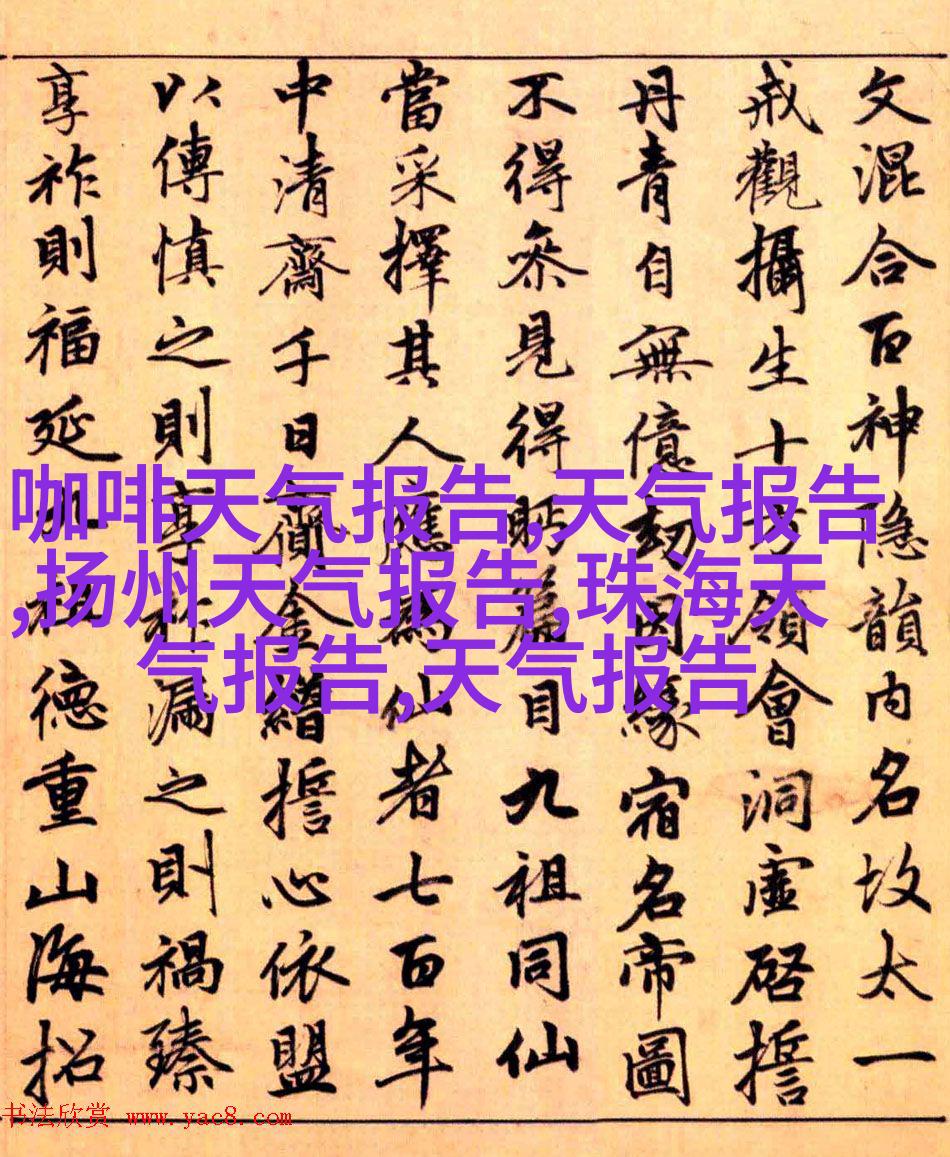 文混合百神隐韻内名故太一
戒觀攝生十方領會洞虛啓誓
丹青自無億劫因緣宿名帝圖
不得叅見得眄篇目九祖同仙
當采擇其人應爲仙者七百年
中清齋千日齎金繒誓心依盟
以傳慎之則享祚漏之則禍臻
享祚則福延九祖德重山海招
咖啡天气报告,天气报告
,扬州天气报告,珠海天
气报告,天气报告
书法欣赏 www.yac8.com